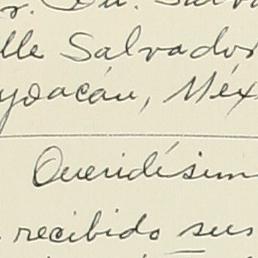 r. Salvado
lle Salvador
yoacán, Méx
Queridísim
recibido sus